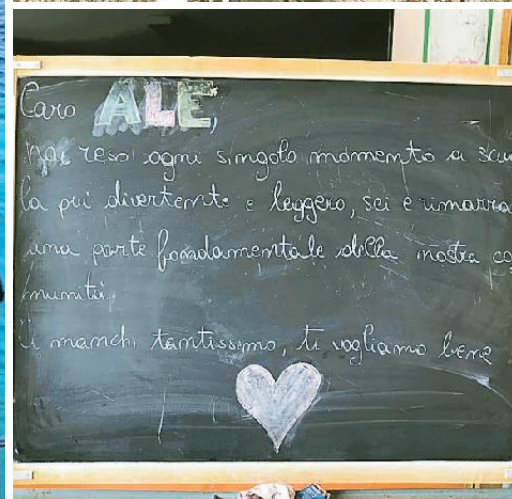 Caro ALE,
hai reso ogni singolo momento a scuo
la piú divertente e leggero, sei e rimarra
una parte fondamentale della nostra co
munità.
Ci manchi tantissimo, ti vogliamo bene